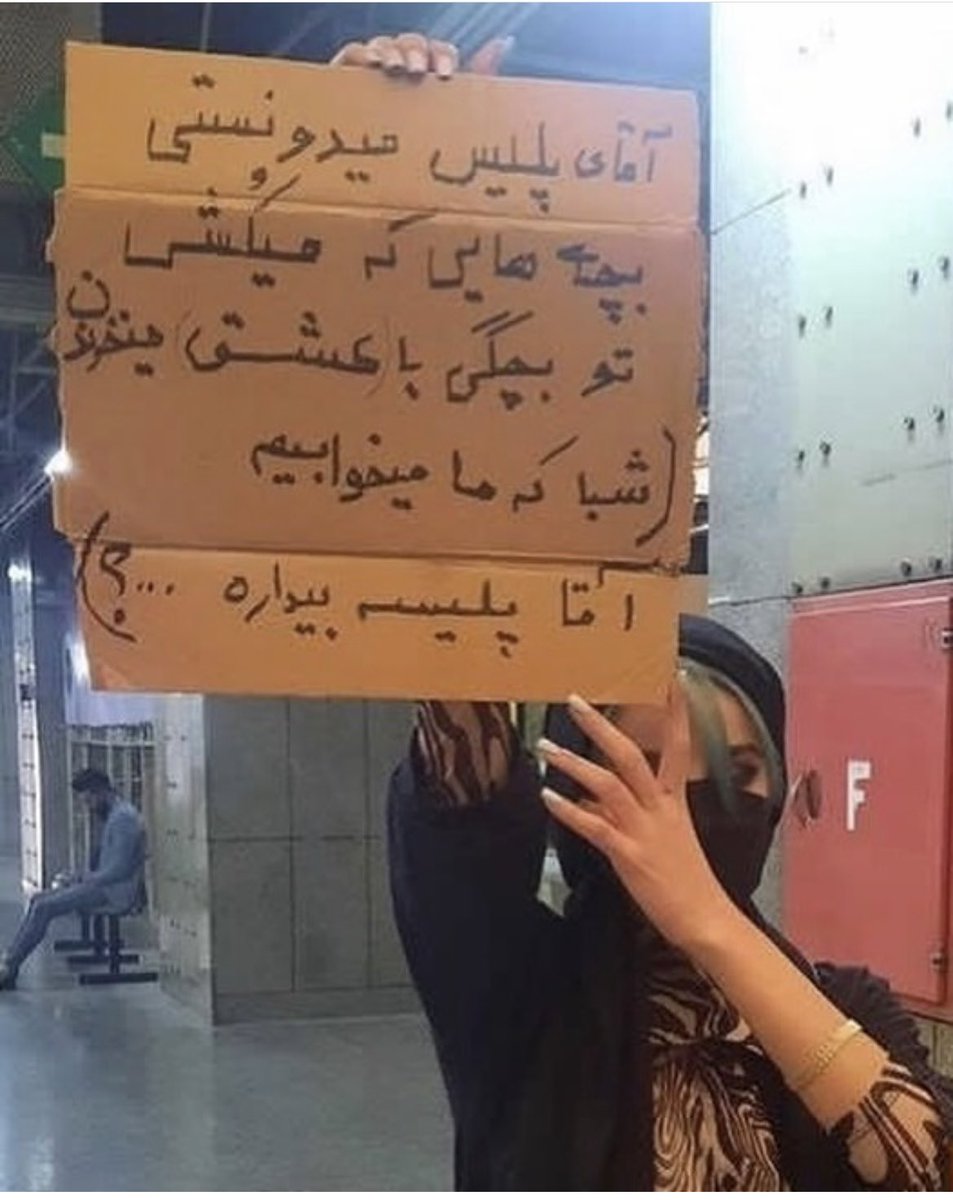 آقای پلیس میدونستی
بچه هایی که میکُشی
تو بچگی با (عشق) میخوندن
(شبا که ما میخوابیم
آقا پلیسه بیداره ...؟)
F